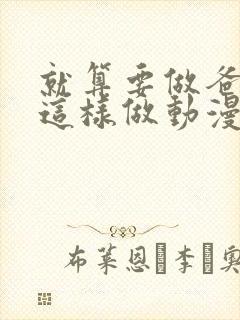 就算要做爸
這樣做動漫
布萊恩·李·奧